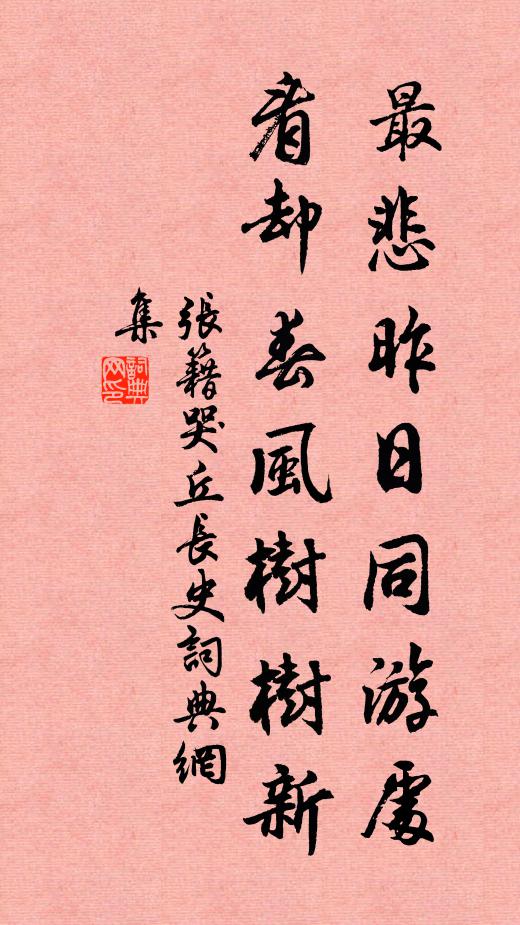 最悲昨日同游處
看却春風樹樹新
張籍哭丘長史詞典網
集
詞典
网印